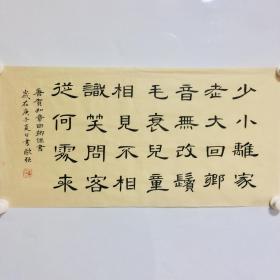 少小離家
老大回鄉
音無改鬢
毛衰兒童
相見不相
識笑問客
從何處來
唐賀知章回鄉偶書
歲在庚子夏日書